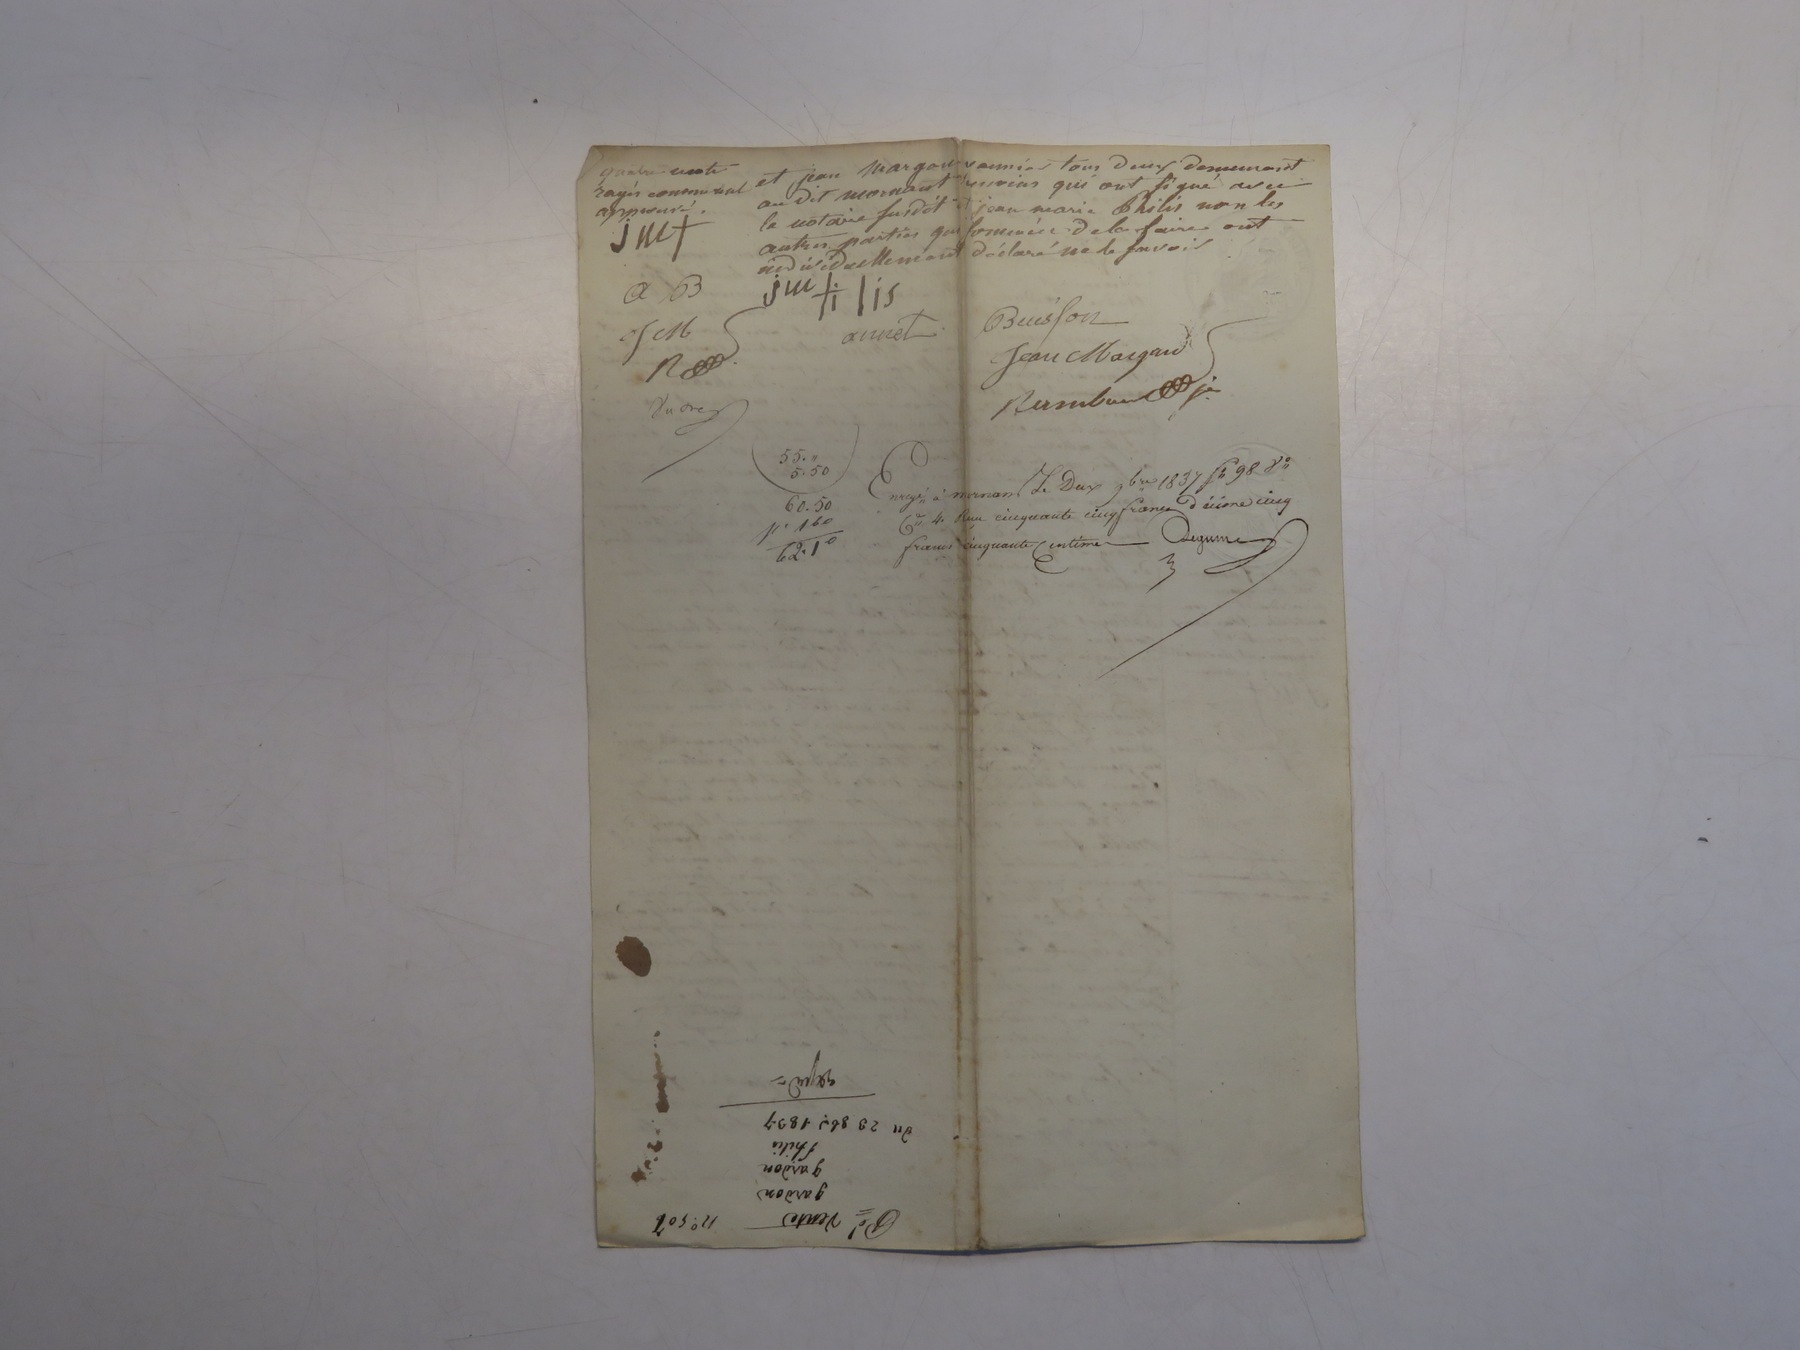 quatre mots
rayés comme nul
approuvé.
et jean Margou vannier tous deux demeurant
au dit mornant temoins qui ont signé avec
le notaire susdit et jean marie Philis non les
autres parties qui sommées de le faire ont
individuellement déclaré ne le savoir
jm f
a B
jm fi lis
annet
Buisson
J M
Jean Margou
R
55.
5.50
60.50
1.60
62.10
Enregré à mornant le Deux 9bre 1837 f° 98 V°
Cse 4. Reçu cinquante cinq francs décime cinq
francs cinquante Centimes
Dd Vente n° 507
gardon
gardon
Philis
du 29 8bre 1837
expéd